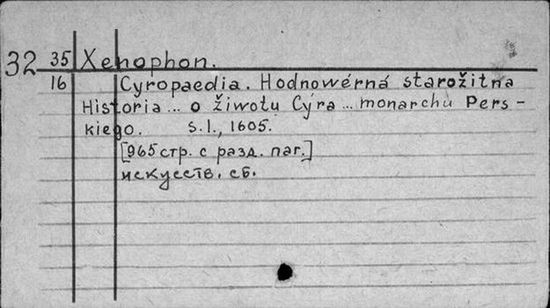 32 35 Xenophon.
16 Cyropaedia. Hodnowérná starožitna
Historia ... o žiwotu Cýra ... monarchu Pers-
kiego. s.l., 1605.
[965 стр. с разд. паг.]
искусств. сб.